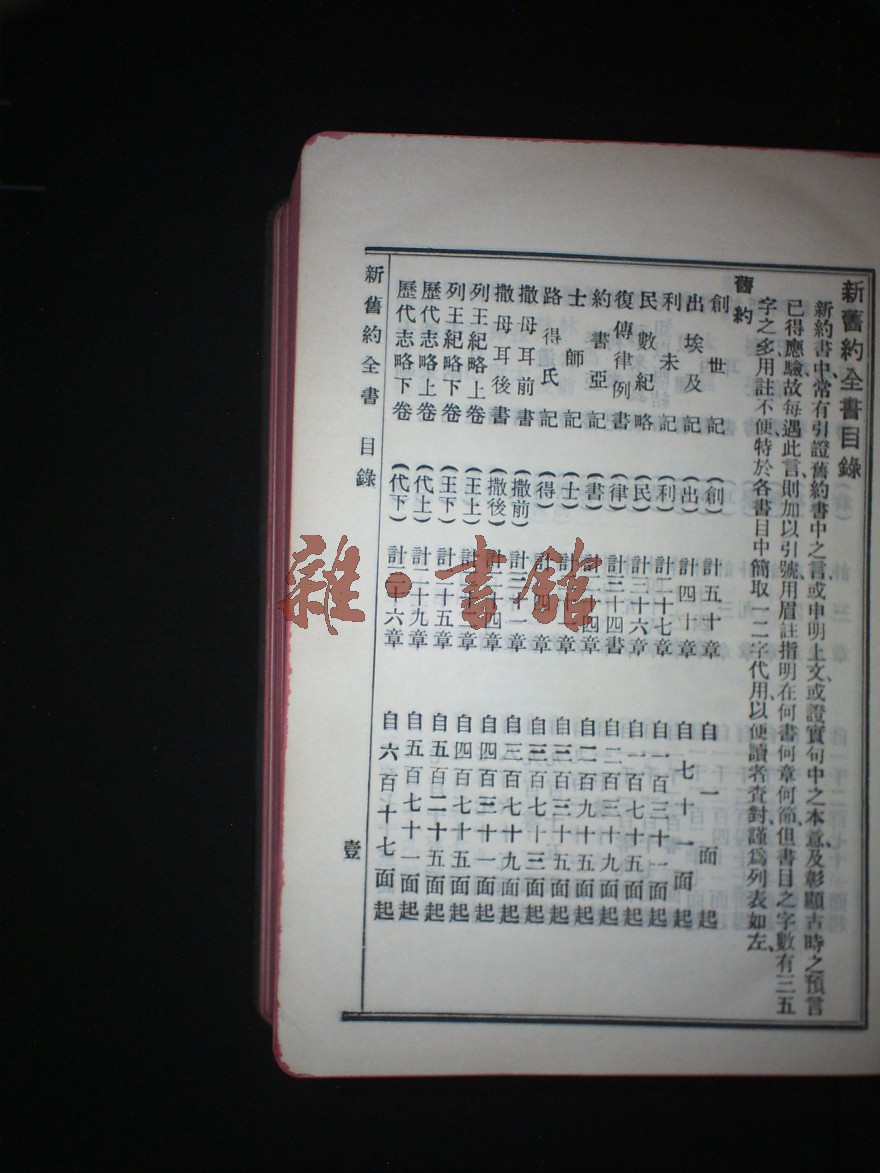 新舊約全書目錄
新約書中、常有引證舊約書中之言、或申明上文、或證實句中之本意、及彰顯古時之預言
已得應驗、故每遇此言、則加以引號、用眉註指明在何書何章何節、但書目之字數有三五
字之多、用註不便、特於各書目中簡取一二字代用、以便讀者查對、謹爲列表如左、
舊約
創世記 (創) 計五十章 自一面起
出埃及記 (出) 計四十章 自七十一面起
利未記 (利) 計二十七章 自一百三十一面起
民數紀略 (民) 計三十六章 自一百七十五面起
復傳律例書 (律) 計三十四書 自二百三十九面起
約書亞記 (書) 計十四章 自二百九十五面起
士師記 (士) 計章 自三百三十五面起
路得氏記 (得) 計四章 自三百七十三面起
撒母耳前書 (撒前) 計三十一章 自三百七十九面起
撒母耳後書 (撒後) 計二十四章 自四百三十一面起
列王紀略上卷 (王上) 計章 自四百七十五面起
列王紀略下卷 (王下) 計二十五章 自五百二十五面起
歷代志略上卷 (代上) 計二十九章 自五百七十一面起
歷代志略下卷 (代下) 計三十六章 自六百十七面起
新舊約全書 目錄 壹
雜·書館